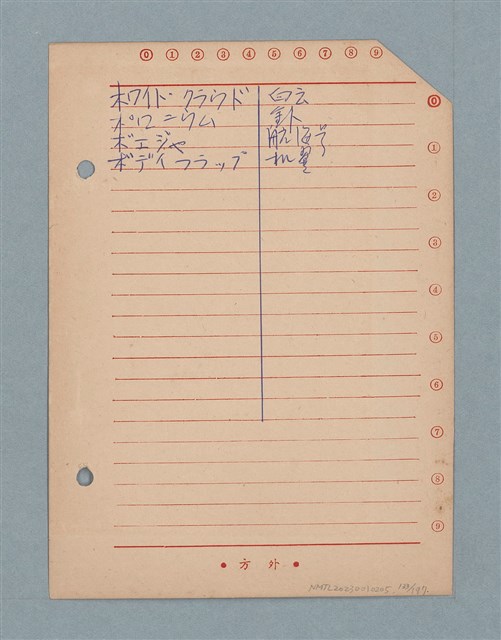 ⓪ ① ② ③ ④ ⑤ ⑥ ⑦ ⑧ ⑨
ホワイト・クラウド 白云
ポロニウム 釙
ボエジャ 航海号
ボデイフラップ 机翼
⓪
①
②
③
④
⑤
⑥
⑦
⑧
⑨
● 方 外 ●
NMTL20230010205 128/197